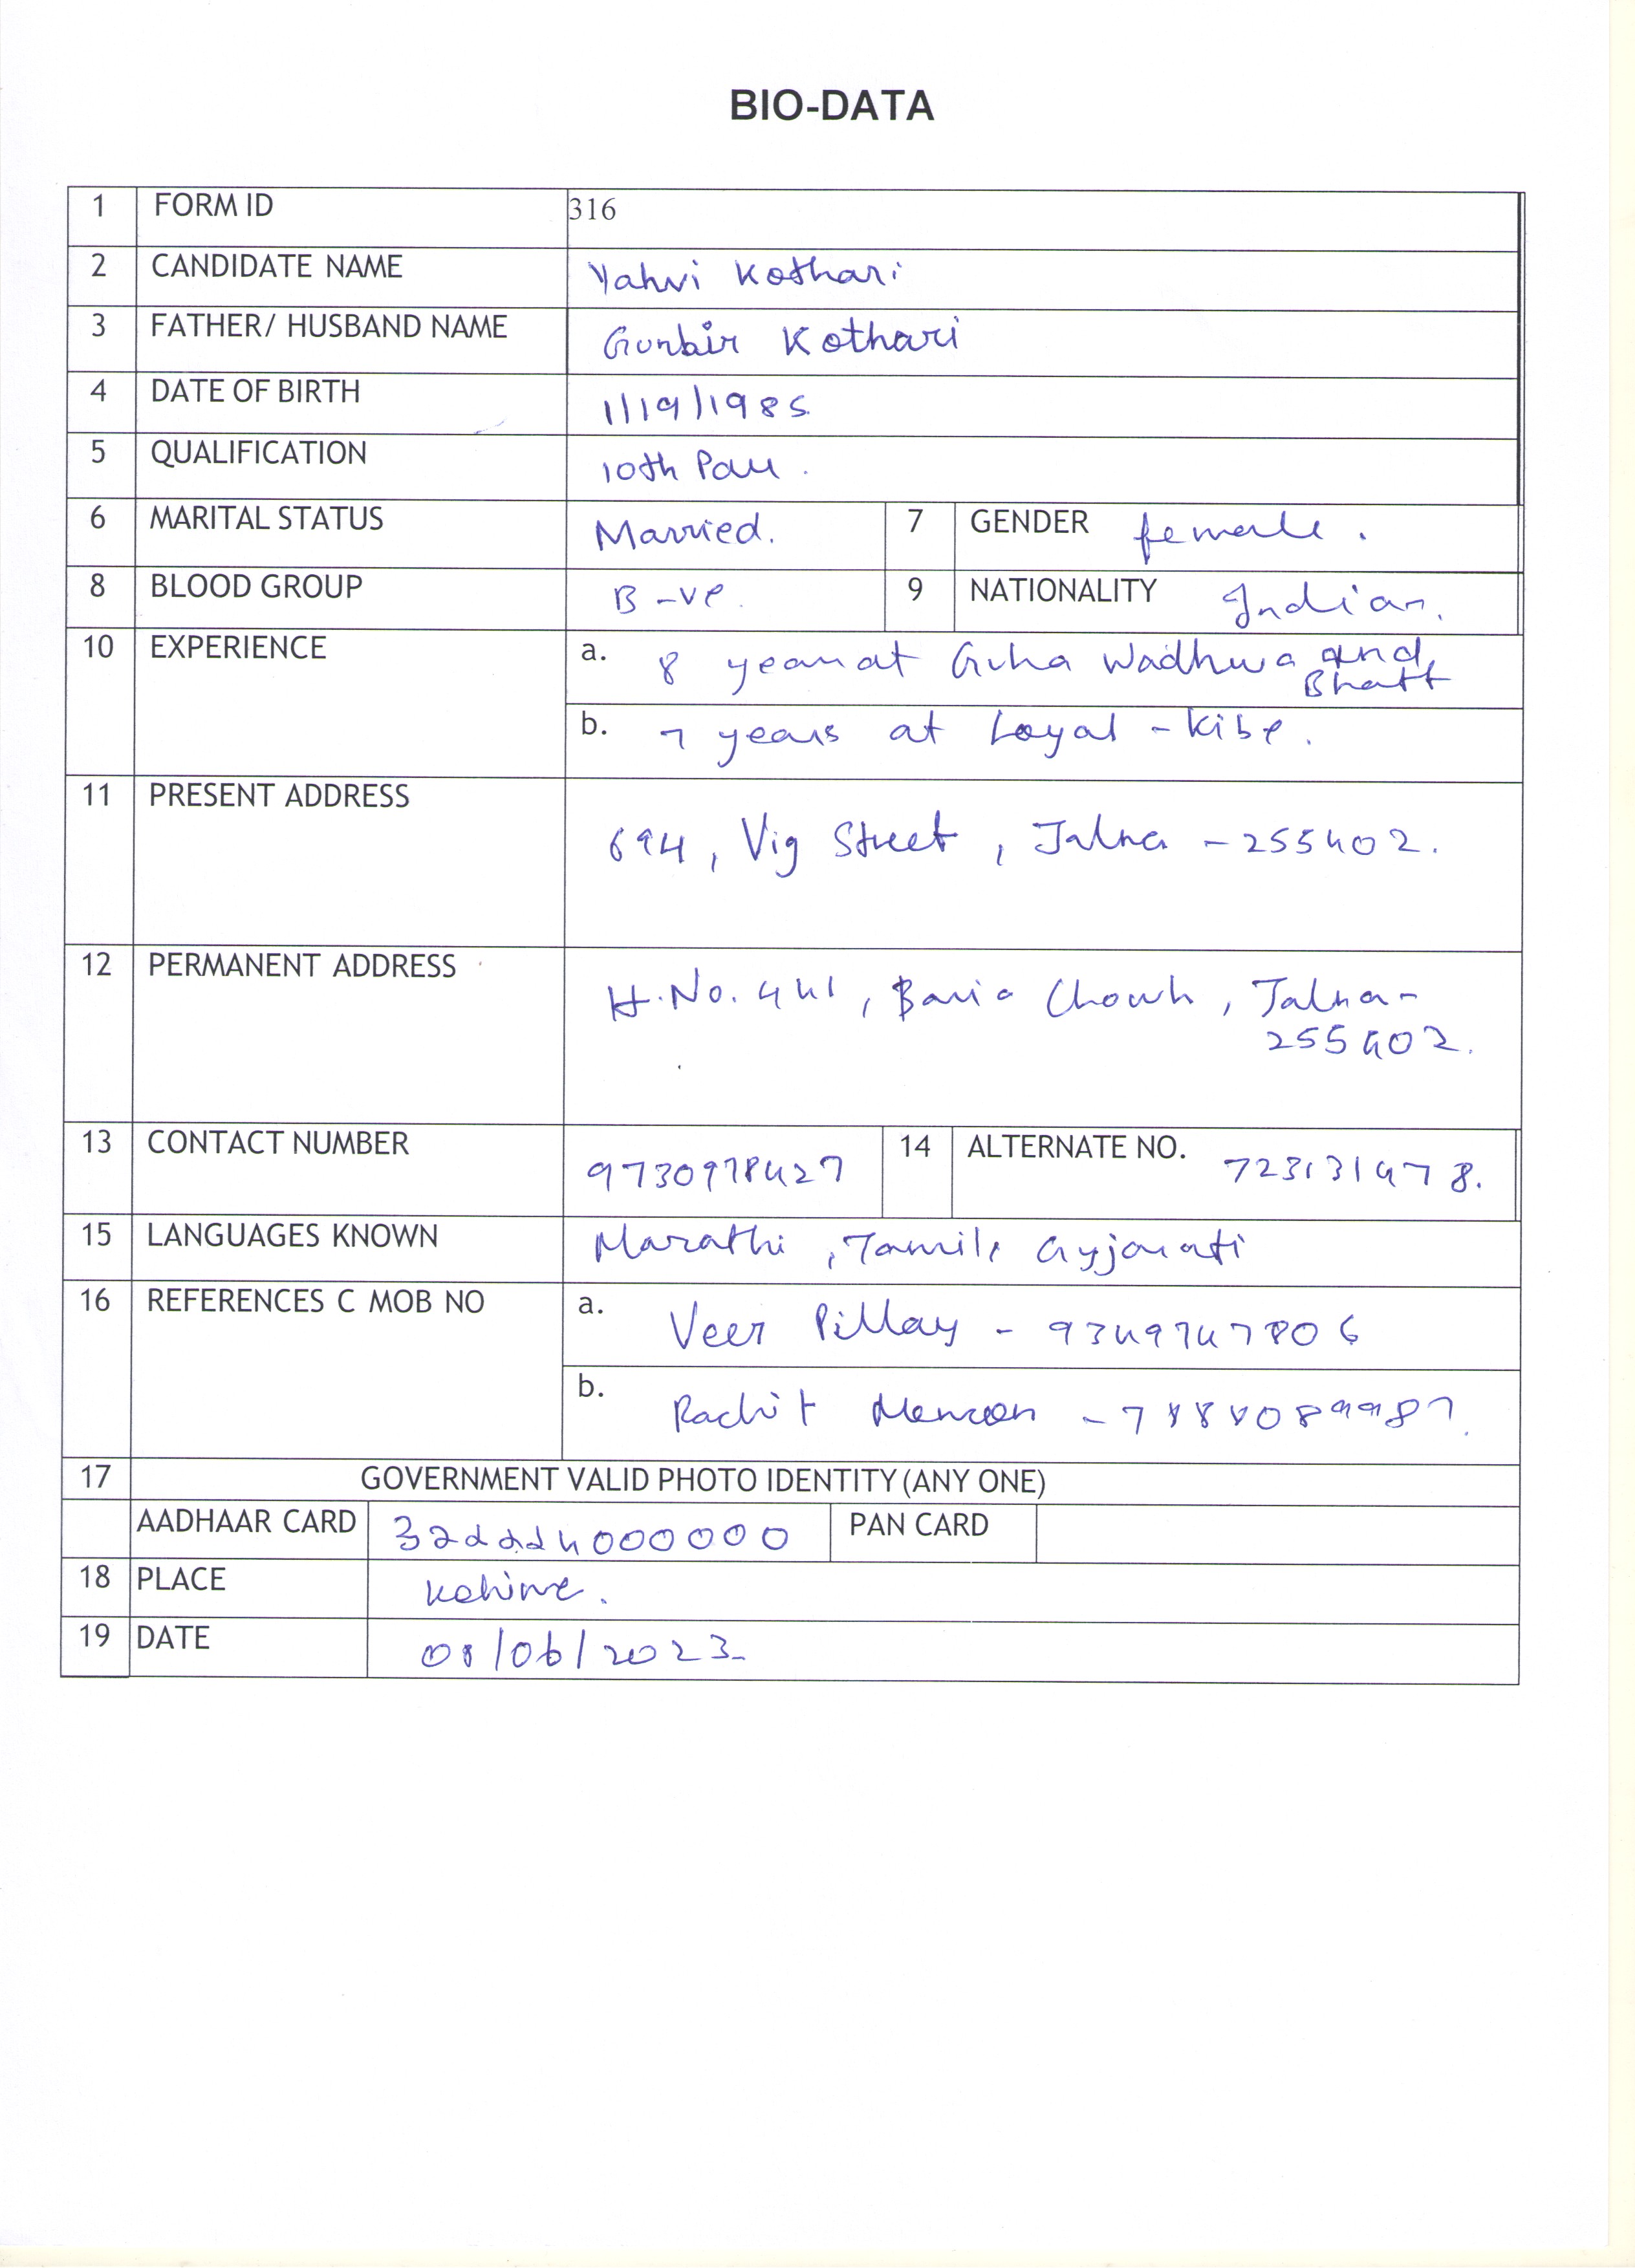 BIO-DATA
1 FORM ID 316
2 CANDIDATE NAME Yahvi Kothari
3 FATHER/ HUSBAND NAME Gunbir Kothari
4 DATE OF BIRTH 1/19/1985
5 QUALIFICATION 10th Pass.
6 MARITAL STATUS Married. 7 GENDER female.
8 BLOOD GROUP B-ve. 9 NATIONALITY Indian.
10 EXPERIENCE a. 8 years at Guha Wadhwa and
Bhatt
b. 7 years at Loyal-Kibe.
11 PRESENT ADDRESS 694, Vig Street, Jalna-255402.
12 PERMANENT ADDRESS H.No. 441, Baria Chowk, Jalna-
255402.
13 CONTACT NUMBER 9730978427 14 ALTERNATE NO. 7231314978.
15 LANGUAGES KNOWN Marathi, Tamil, Gujarati
16 REFERENCES C MOB NO a. Veer Pillay - 9349747806
b. Rachit Menon -
17 GOVERNMENT VALID PHOTO IDENTITY (ANY ONE)
AADHAAR CARD PAN CARD
18 PLACE
19 DATE 08/06/2023